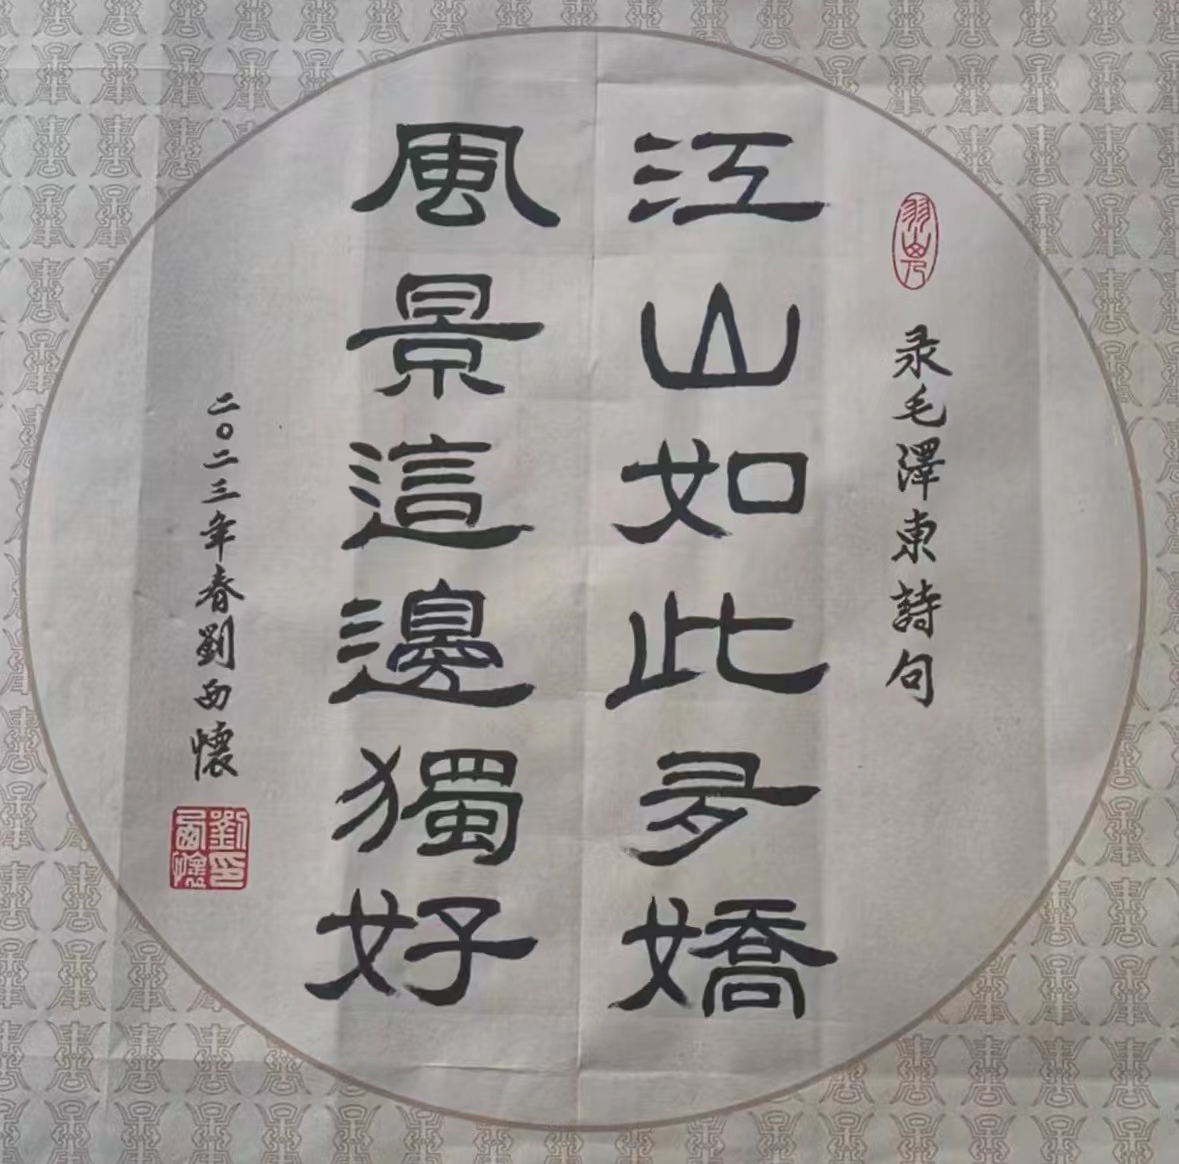 录毛澤東詩句
江山如此多嬌
風景這邊獨好
二〇二三年春劉西懷
劉印西懷